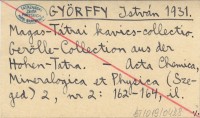 GYÖRFFY István 1931.
Magas-Tátrai kavics-collectio.
Gerölle-Collection aus der
Hohen-Tatra. — Acta Chemica,
Mineralogica et Physica (Sze-
ged) 2, nr 2: 162-164, il.